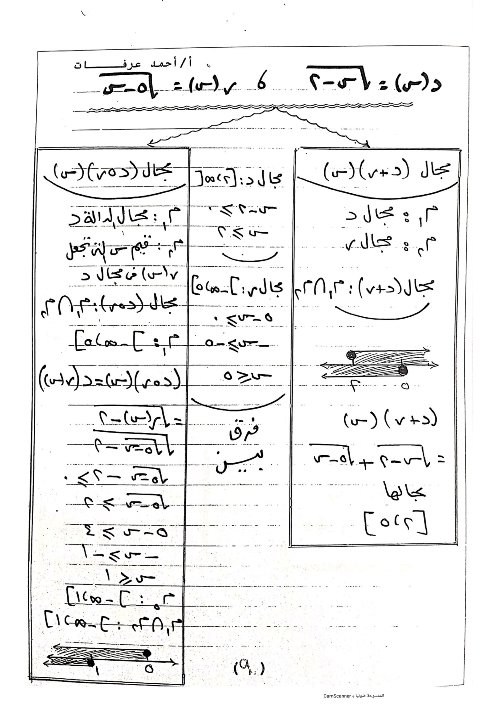 أ/أحمد عرفات
د(س) = √س-٢ ، ر(س) = √٥-س
مجال (د+ر)(س)
م١: مجال د
م٢: مجال ر
مجال (د+ر): م١∩م٢
٢ ٥
(د+ر)(س)
= √س-٢ + √٥-س
مجالها
[٢،٥]
مجال د: [٢،∞[
س-٢ ≥ ٠
س ≥ ٢
مجال ر: ]-∞،٥]
٥-س ≥ ٠
-س ≥ -٥
س ≤ ٥
فرق
بين
مجال (د∘ر)(س)
م١: مجال الدالة د
م٢: قيم س التى تجعل
ر(س) في مجال د
مجال (د∘ر): م١∩م٢
م١: ]-∞،٥]
(د∘ر)(س) = د(ر(س))
= √ر(س)-٢
√√٥-س - ٢
√٥-س - ٢ ≥ ٠
√٥-س ≥ ٢
٥-س ≥ ٤
-س ≥ -١
س ≤ ١
م٢: ]-∞،١]
م١∩م٢: ]-∞،١]
١ ٥
(٩)
الممسوحة ضوئيا بـ CamScanner